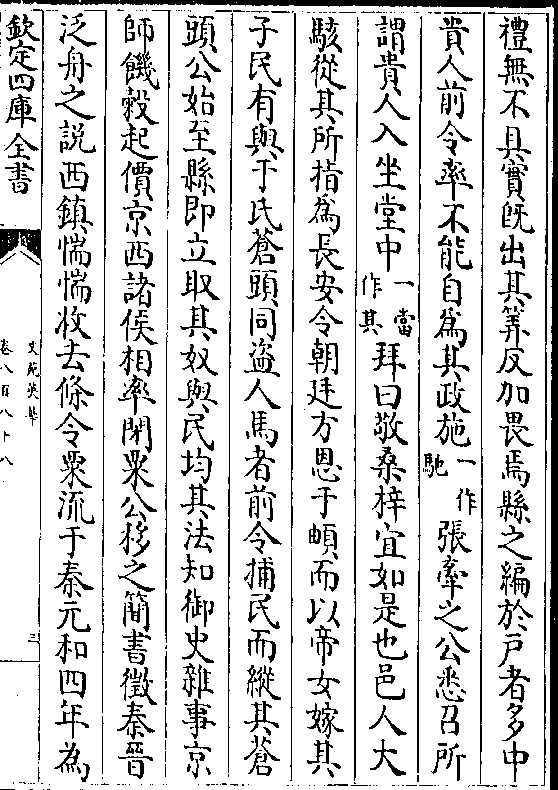 禮無不具實旣出其筭反加畏焉縣之編於戸者多中
貴人前令率不能自爲其政施一作馳張牽之公悉召所
謂貴人入坐堂中一作當其拜曰敬桑梓宜如是也邑人大
駭從其所指爲長安令朝廷方恩于頔而以帝女嫁其
子民有與于氏蒼頭同盜人馬者前令捕民而縱其蒼
頭公始至縣即立取其奴與民均其法知御史雜事京
師饑榖起價京西諸侯相率閉粟公移之簡書徵秦晉
泛舟之説西鎮惴惴牧去條令粟流于秦元和四年為
欽定四庫全書
文苑英華
卷八百八十八
三